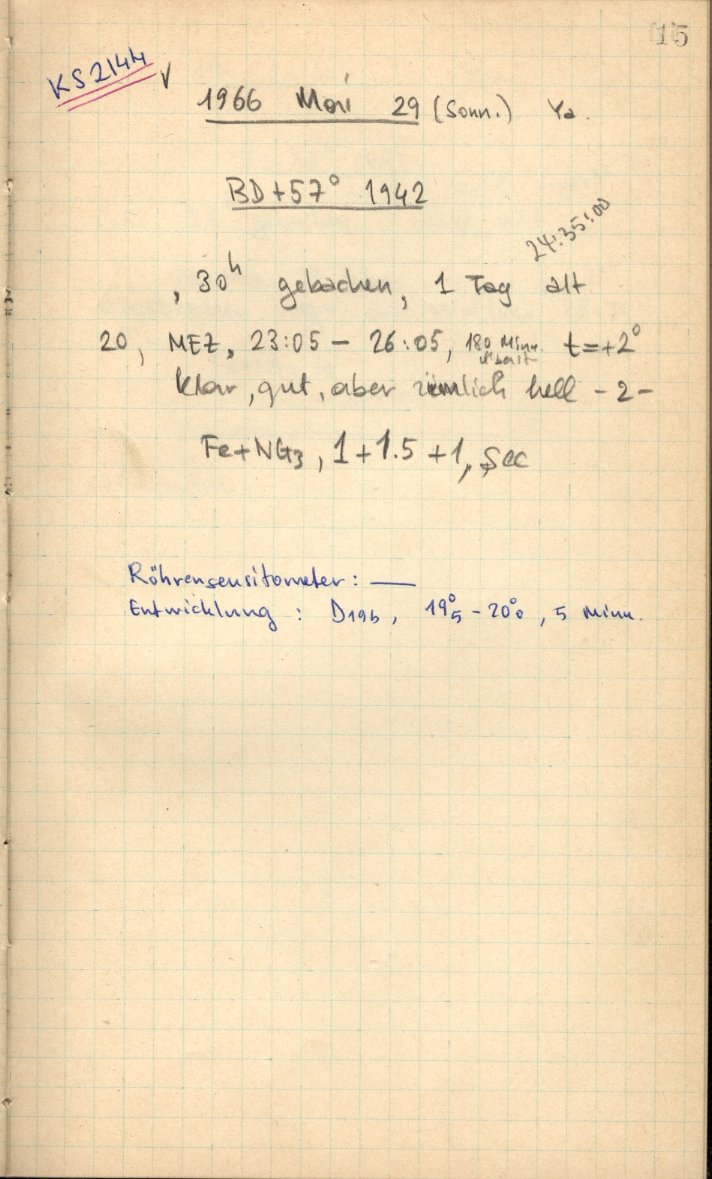 15
KS 2144 ✓
1966 Mai 29 (Sonn.) Ya.
BD+57° 1942
24:35:00
, 30h gebacken, 1 Tag alt
20, MEZ, 23:05 – 26:05, 180 Minn. t=+2°
klar, gut, aber ziemlich hell – 2 –
Fe+NG3, 1+1.5+1, Sec
Röhrensensitometer: —
Entwicklung : D19b, 19°5 – 20°0, 5 Minn.